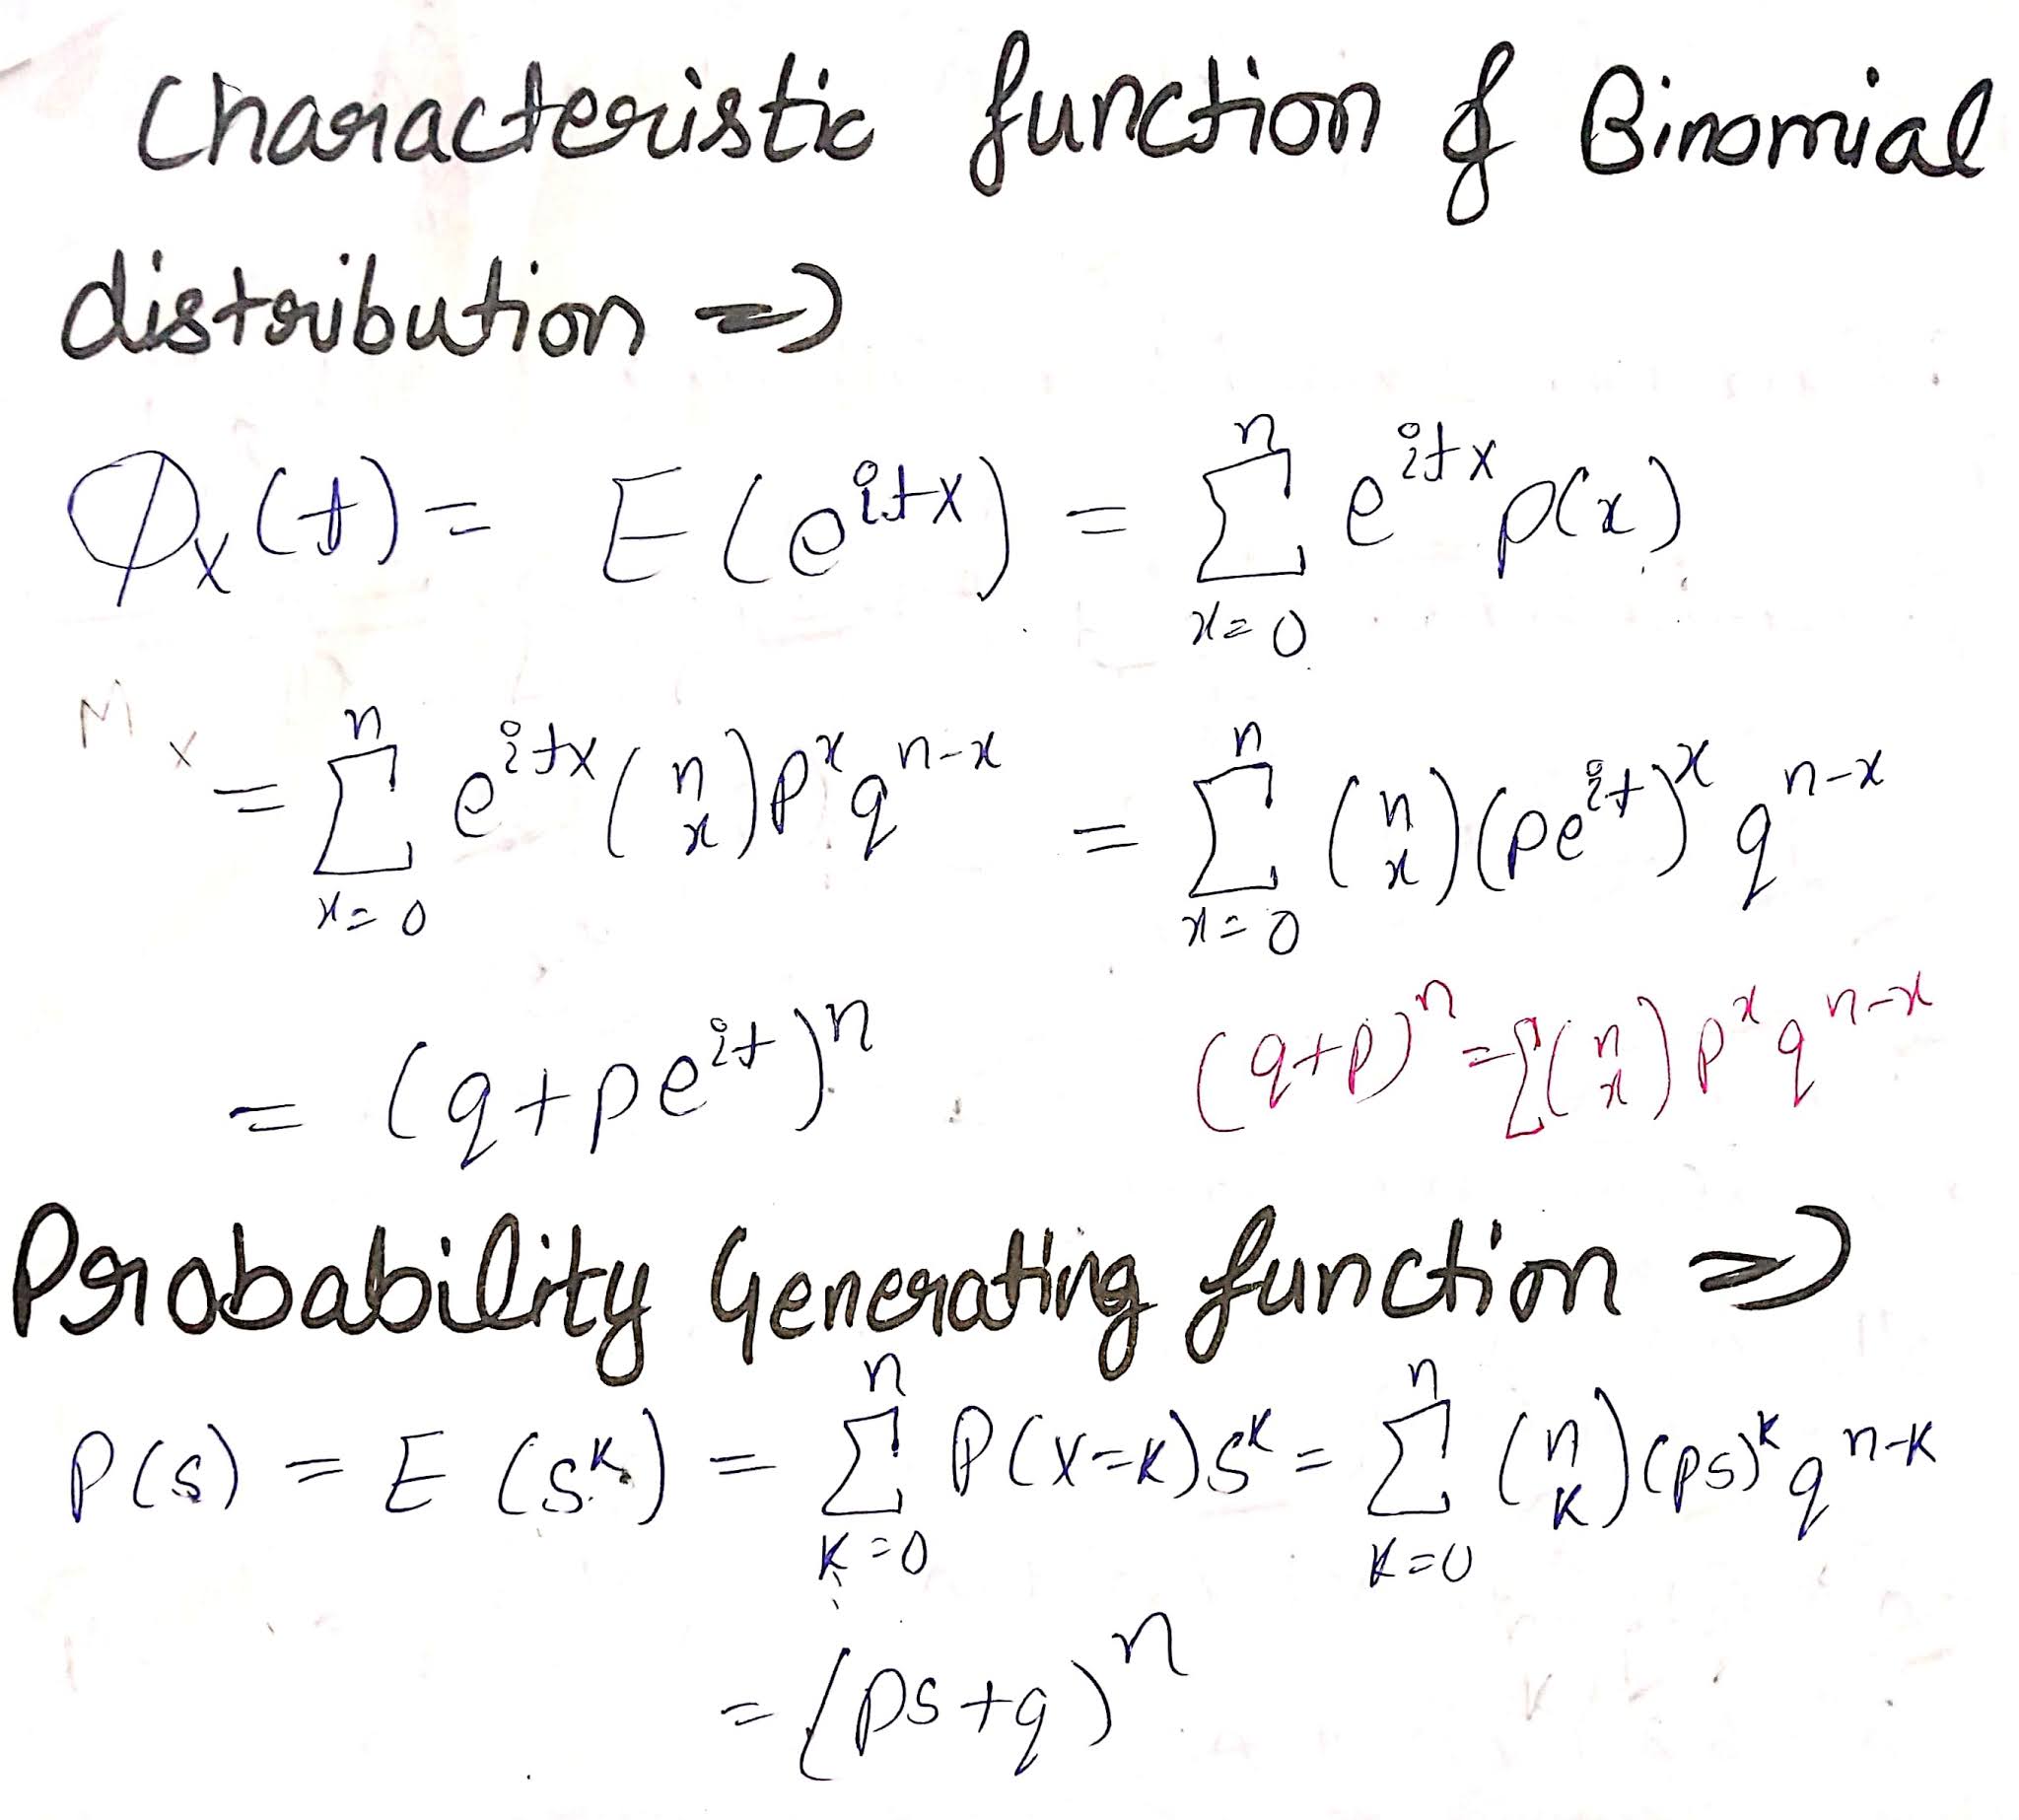 Characteristic function of Binomial
distribution ⇒
Φ_X(t) = E(e^{itx}) = Σ_{x=0}^{n} e^{itx} p(x)
M_X
= Σ_{x=0}^{n} e^{itx} (n x) p^x q^{n-x} = Σ_{x=0}^{n} (n x) (pe^{it})^x q^{n-x}
= (q+pe^{it})^n. (q+p)^n = Σ (n x) p^x q^{n-x}
Probability Generating function ⇒
P(s) = E (s^k) = Σ_{k=0}^{n} P(X=k) s^k = Σ_{k=0}^{n} (n k) (ps)^k q^{n-k}
= (ps+q)^n